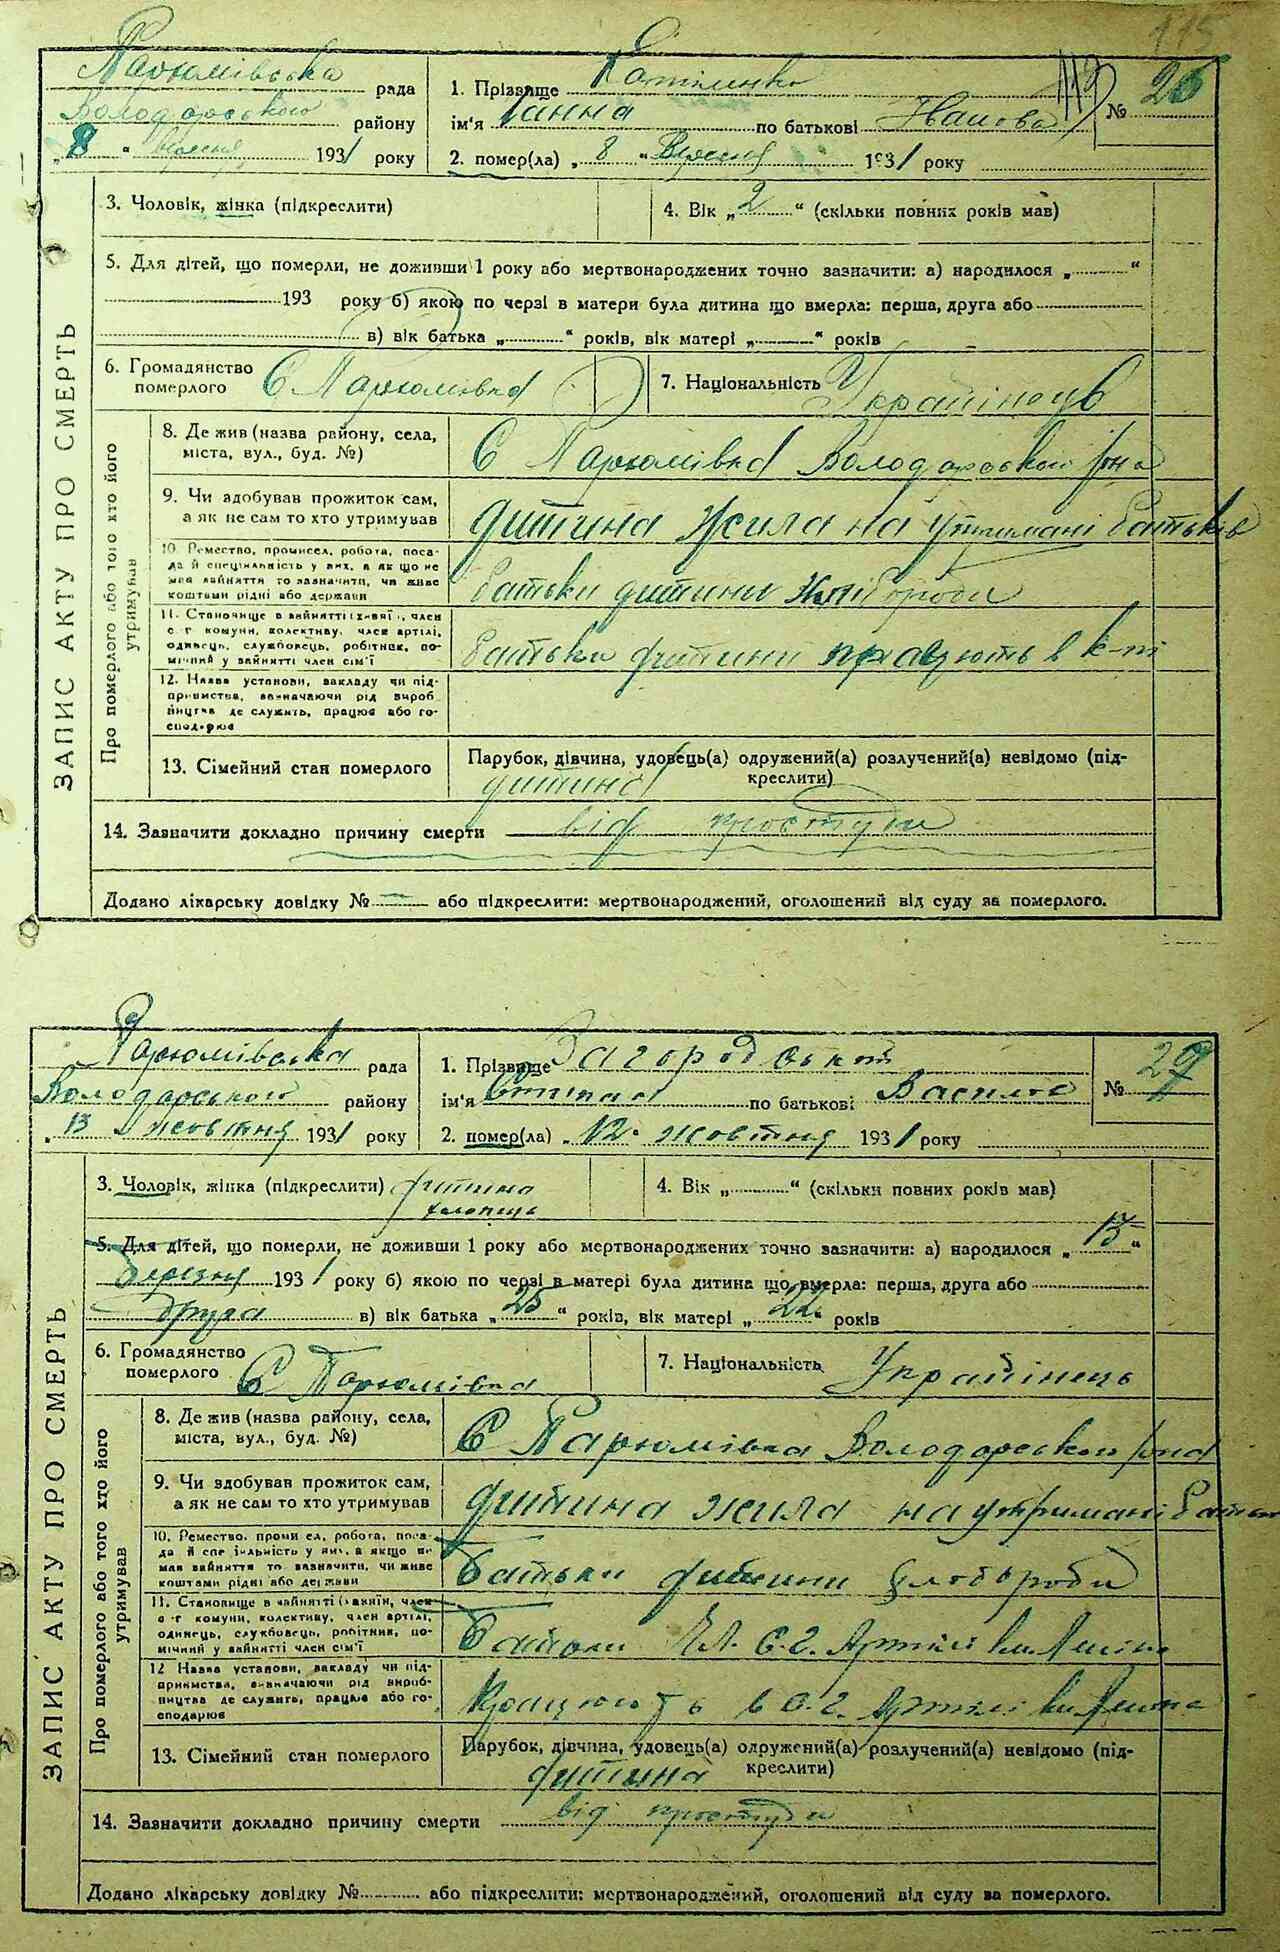 115
Парюмівська рада
Володарського району
"8" вересня 1931 року
1. Прізвище
112
№ 26
ім'я Ганна по батькові Іванова
2. помер(ла) "8" Вересня 1931 року
ЗАПИС АКТУ ПРО СМЕРТЬ
3. Чоловік, жінка (підкреслити)
4. Вік „2“ (скільки повних років мав)
5. Для дітей, що померли, не доживши 1 року або мертвонароджених точно зазначити: а) народилося „ “
193 року б) якою по черзі в матери була дитина що вмерла: перша, друга або
в) вік батька „ “ років, вік матері „ “ років
6. Громадянство
померлого С Парюмівка
7. Національність Українець
Про померлого або того хто його
утримував
8. Де жив (назва району, села,
міста, вул., буд. №)
С Парюмівка Володарського р/на
9. Чи здобував прожиток сам,
а як не сам то хто утримував
дитина жила на утримані батьків
10. Ремество, промисел, робота, поса-
да й спеціяльність у них, а як що не
мав зайняття то зазначити, чи живе
коштами рідні або держави
батьки дитини хлібороби
11. Становище в зайнятті (хазяїн, член
с-г комуни, колективу, член артілі,
одинець, службовець, робітник, по-
мічний у зайнятті член сім'ї
батьки дитини працюють в к-ті
12. Назва установи, закладу чи під-
приємства, зазначаючи рід вироб-
ництва де служить, працює або го-
сподарює
13. Сімейний стан померлого
Парубок, дівчина, удовець(а) одружений(а) розлучений(а) невідомо (під-
креслити)
дитина
14. Зазначити докладно причину смерти від простуди
Додано лікарську довідку № або підкреслити: мертвонароджений, оголошений від суду за померлого.
Парюмівська рада
Володарського району
"13" жовтня 1931 року
1. Прізвище Загородський
№ 27
ім'я по батькові Василів
2. помер(ла) "12" жовтня 1931 року
ЗАПИС АКТУ ПРО СМЕРТЬ
3. Чоловік, жінка (підкреслити) дитина
хлопець
4. Вік „ “ (скільки повних років мав)
5. Для дітей, що померли, не доживши 1 року або мертвонароджених точно зазначити: а) народилося „15“
березня 1931 року б) якою по черзі в матері була дитина що вмерла: перша, друга або
друга в) вік батька „25“ років, вік матері „22“ років
6. Громадянство
померлого С Парюмівка
7. Національність Українець
Про померлого або того хто його
утримував
8. Де жив (назва району, села,
міста, вул., буд. №)
С Парюмівка Володарського р/на
9. Чи здобував прожиток сам,
а як не сам то хто утримував
дитина жила на утримані батьків
10. Ремество, промисел, робота, поса-
да й спеціяльність у них, а якщо не
мав зайняття то зазначити, чи живе
коштами рідні або держави
Батьки дитини хлібороби
11. Становище в зайнятті (хазяїн, член
с-г комуни, колективу, член артілі,
одинець, службовець, робітник, по-
мічний у зайнятті член сім'ї
Батьки чл. С.г. Артілі ім. Леніна
12 Назва установи, закладу чи під-
приємства, зазначаючи рід вироб-
ництва де служить, працює або го-
сподарює
Працюють в с.г. Артілі ім Леніна
13. Сімейний стан померлого
Парубок, дівчина, удовець(а) одружений(а) розлучений(а) невідомо (під-
креслити)
дитина
14. Зазначити докладно причину смерти від простуди
Додано лікарську довідку № або підкреслити: мертвонароджений, оголошений від суду за померлого.